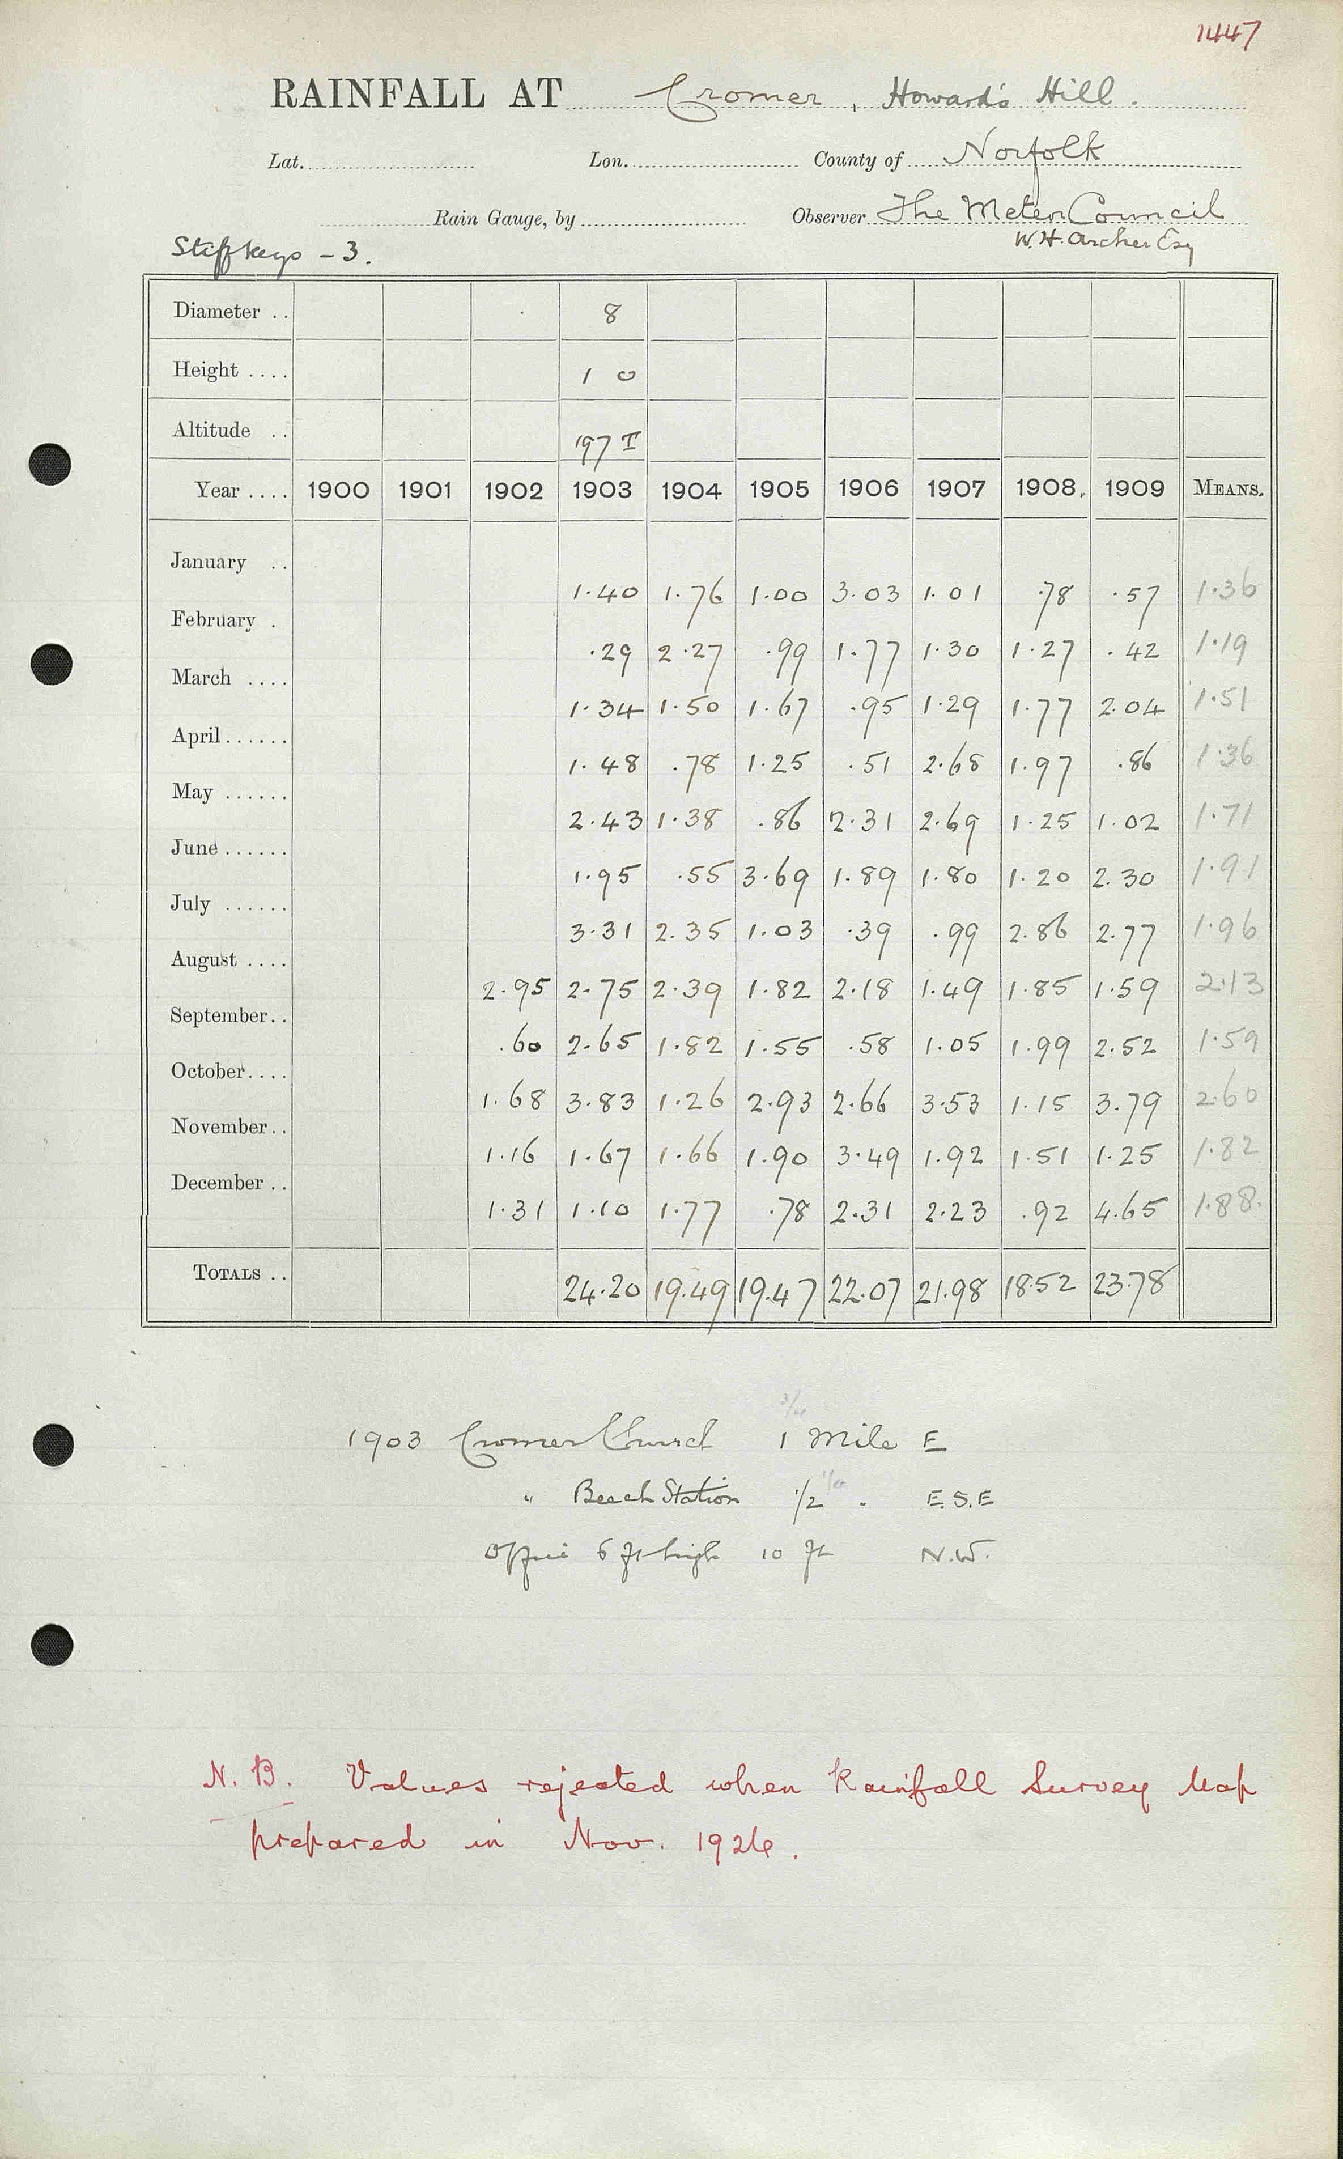 1447
RAINFALL AT Cromer, Howard's Hill.
Lat. Lon. County of Norfolk
Rain Gauge, by Observer The Meteor Council
Stiffkeys - 3. W.H. Archer Esq
Diameter .. 8
Height .... 1 0
Altitude .. 197 T
Year .... 1900 1901 1902 1903 1904 1905 1906 1907 1908. 1909 MEANS.
January .. 1.40 1.76 1.00 3.03 1.01 .78 .57 1.36
February . .29 2.27 .99 1.77 1.30 1.27 .42 1.19
March .... 1.34 1.50 1.67 .95 1.29 1.77 2.04 1.51
April...... 1.48 .78 1.25 .51 2.68 1.97 .86 1.36
May ...... 2.43 1.38 .86 2.31 2.69 1.25 1.02 1.71
June...... 1.95 .55 3.69 1.89 1.80 1.20 2.30 1.91
July ...... 3.31 2.35 1.03 .39 .99 2.86 2.77 1.96
August .... 2.95 2.75 2.39 1.82 2.18 1.49 1.85 1.59 2.13
September.. .60 2.65 1.82 1.55 .58 1.05 1.99 2.52 1.59
October.... 1.68 3.83 1.26 2.93 2.66 3.53 1.15 3.79 2.60
November.. 1.16 1.67 1.66 1.90 3.49 1.92 1.51 1.25 1.82
December .. 1.31 1.10 1.77 .78 2.31 2.23 .92 4.65 1.88.
TOTALS .. 24.20 19.49 19.47 22.07 21.98 18.52 23.78
3/4
1903 Cromer Church 1 Mile E
" Beach Station 1/2 . E.S.E
Office 6 ft high 10 ft N.W.
N.B. Values rejected when Rainfall Survey Map
prepared in Nov. 1926.